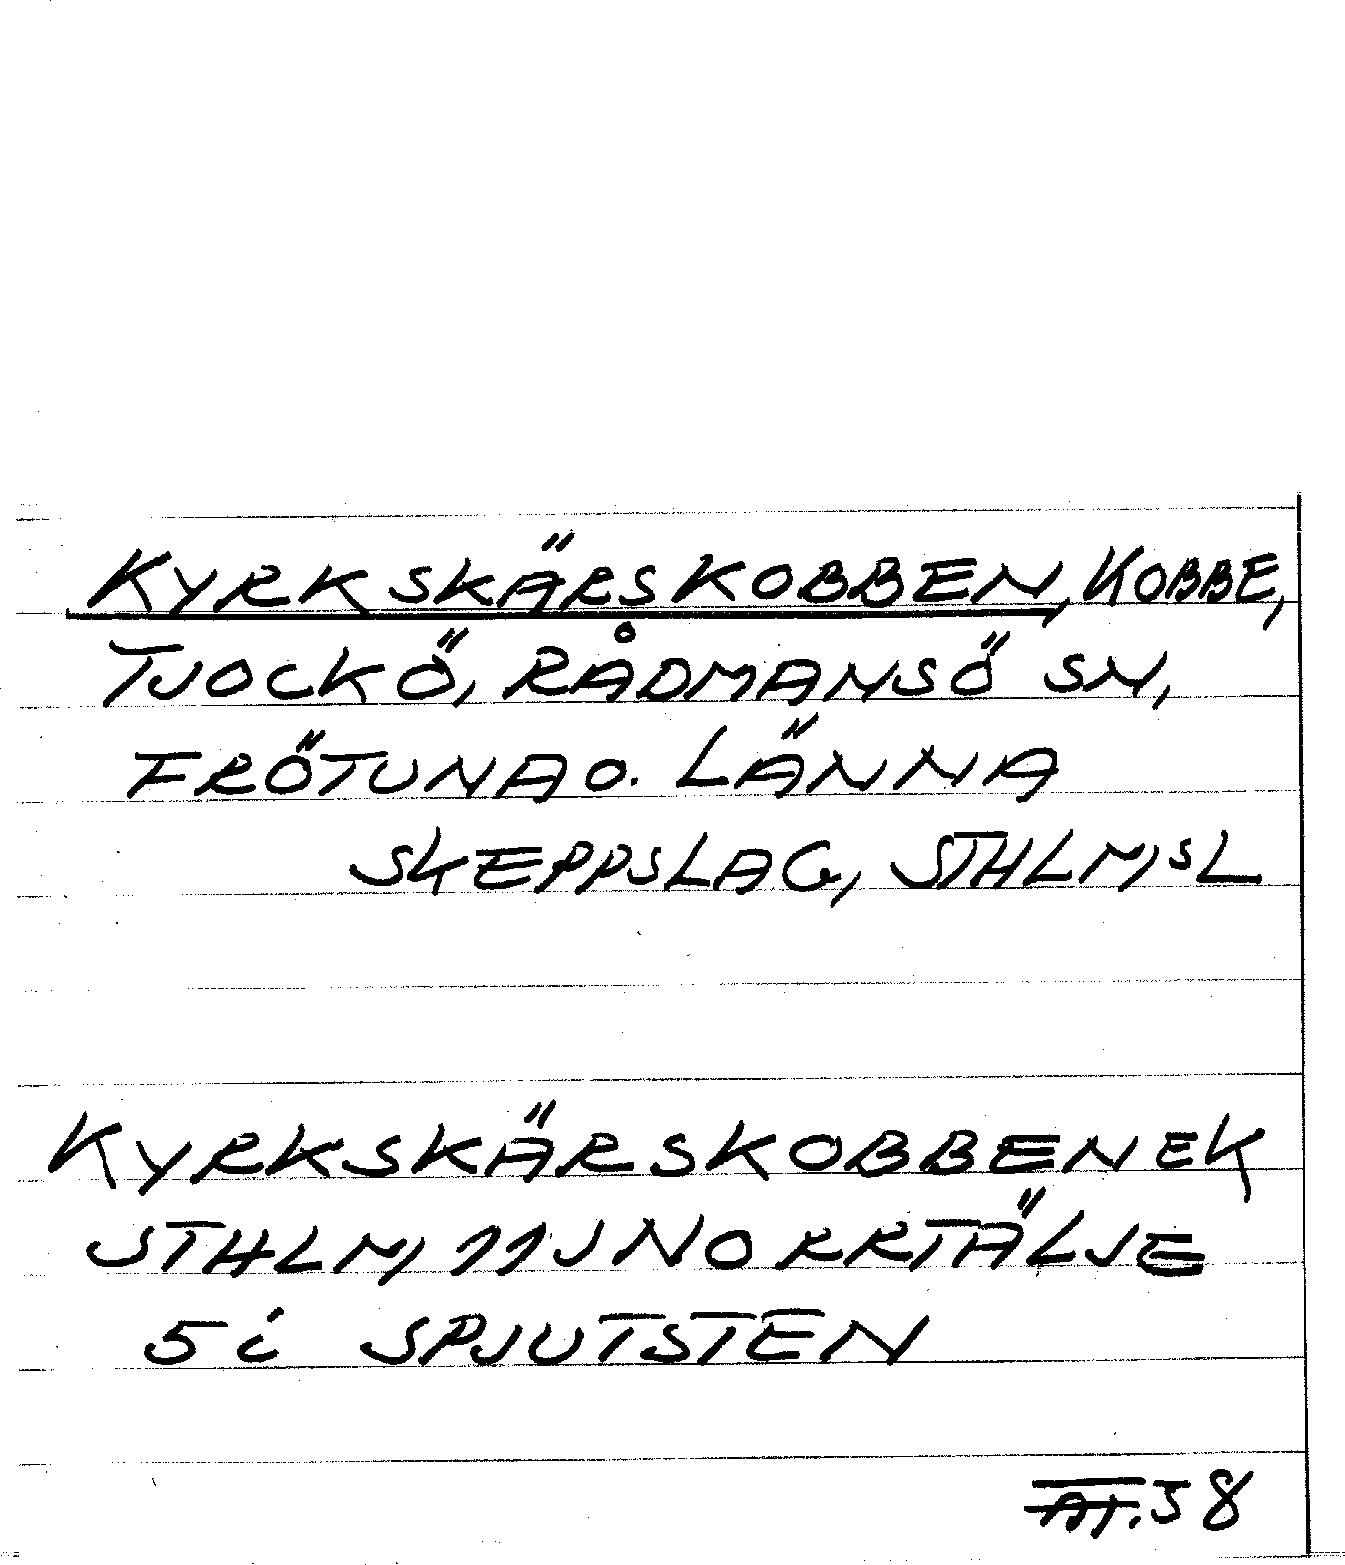 KYRKSKÄRSKOBBEN, KOBBE,
TJOCKÖ, RÅDMANSÖ SN,
FRÖTUNA O. LÄNNA
SKEPPSLAG, STHLM,SL
KYRKSKÄRSKOBBEN EK
STHLM, 11J NORRTÄLJE
5i SPJUTSTEN
58